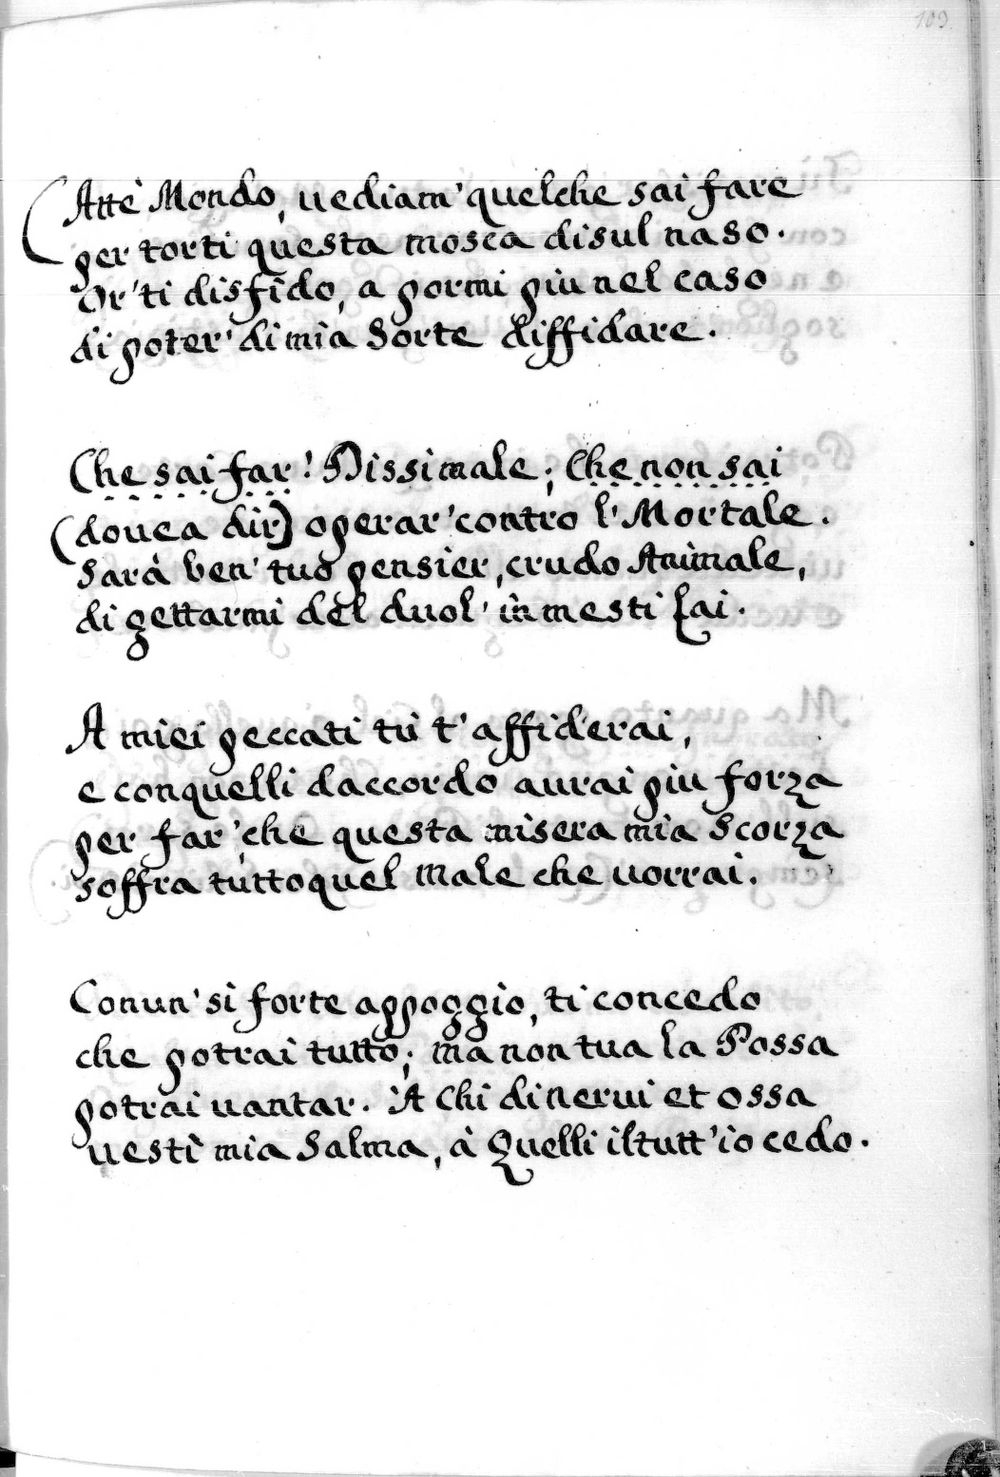 109
Attè Mondo, uediam' quelche sai fare
per torti questa mosca disul naso.
Or' ti disfido, a pormi piu nel caso
di poter' di mia Sorte diffidare.
Che sai far! Dissi male; Che non sai
(douea dir) operar' contro l' Mortale.
Sarà ben' tuo pensier, crudo Animale,
di gettarmi del duol' in mesti Lai.
A miei peccati tù t' affiderai,
e conquelli daccordo aurai piu forza
per far', che questa misera mia Scorza
soffra tuttoquel male che uorrai.
Conun' sì forte appoggio, ti concedo
che potrai tutto; ma non tua la Possa
potrai uantar. A Chi di nerui et ossa
uestì mia Salma, à Quelli iltutt' io cedo.